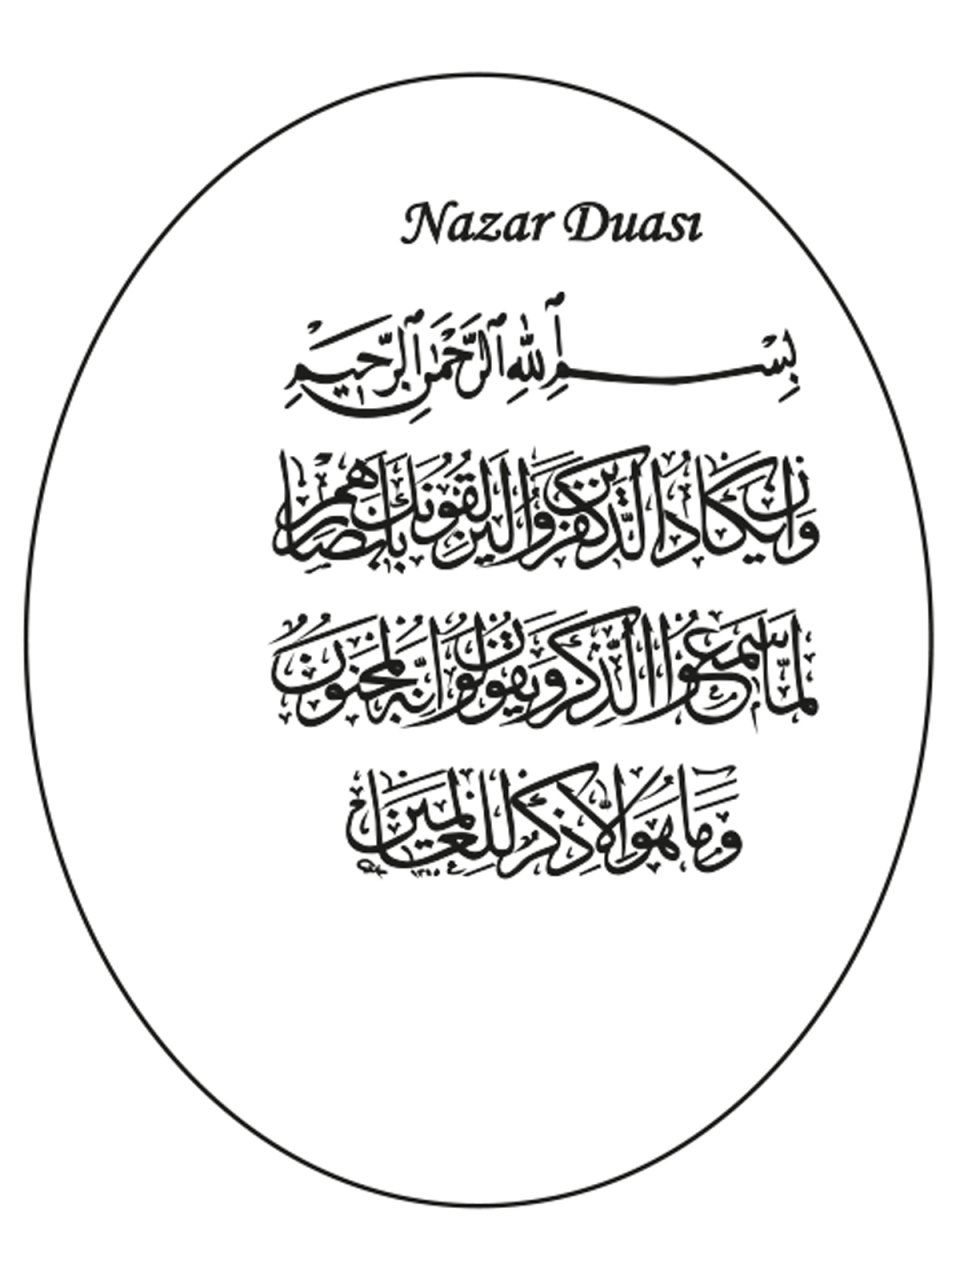 Nazar Duası
بِسْمِ ٱللهِ ٱلرَّحْمٰنِ ٱلرَّحِيمِ
وَاِنْ يَكَادُ الَّذِينَ كَفَرُوا لَيُزْلِقُونَكَ بِاَبْصَارِهِمْ
لَمَّا سَمِعُوا الذِّكْرَ وَيَقُولُونَ اِنَّهُ لَمَجْنُونٌ
وَمَا هُوَ اِلَّا ذِكْرٌ لِلْعَالَمِينَ
١٣٥٥